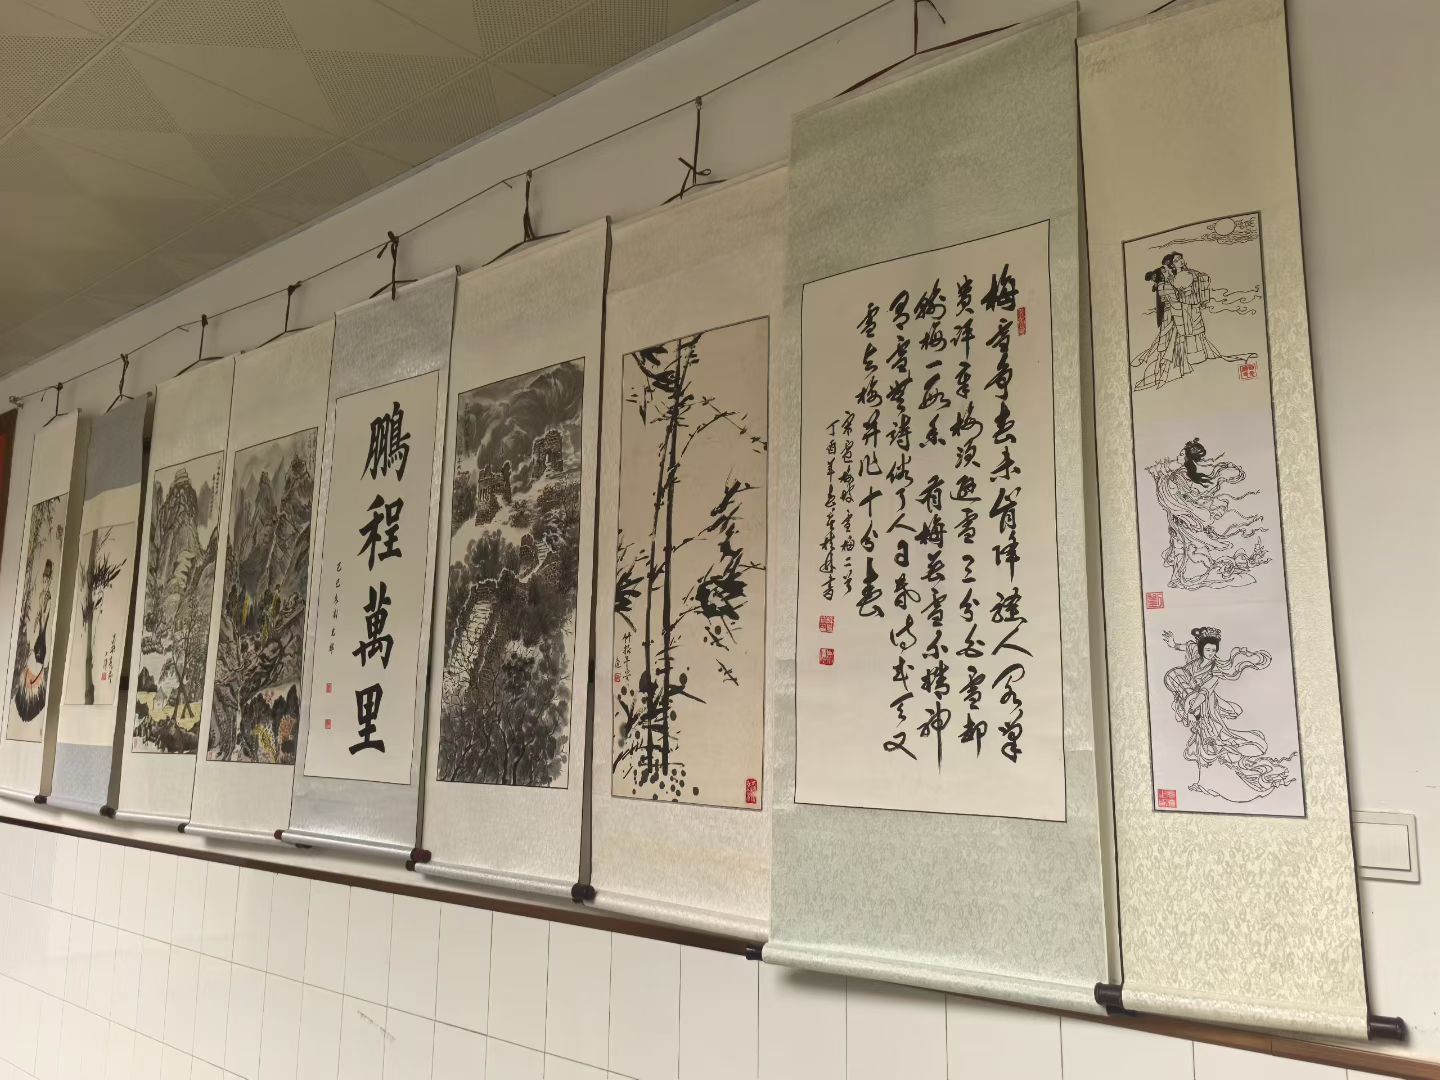 梅雪争春未肯降骚人阁笔
费评章梅须逊雪三分白雪却
输梅一段香有梅无雪不精神
有雪無诗俗了人日暮诗成天又
雪与梅并作十分春
宋卢梅坡雪梅二首
丁酉年春
竹报平安
鵬程萬里